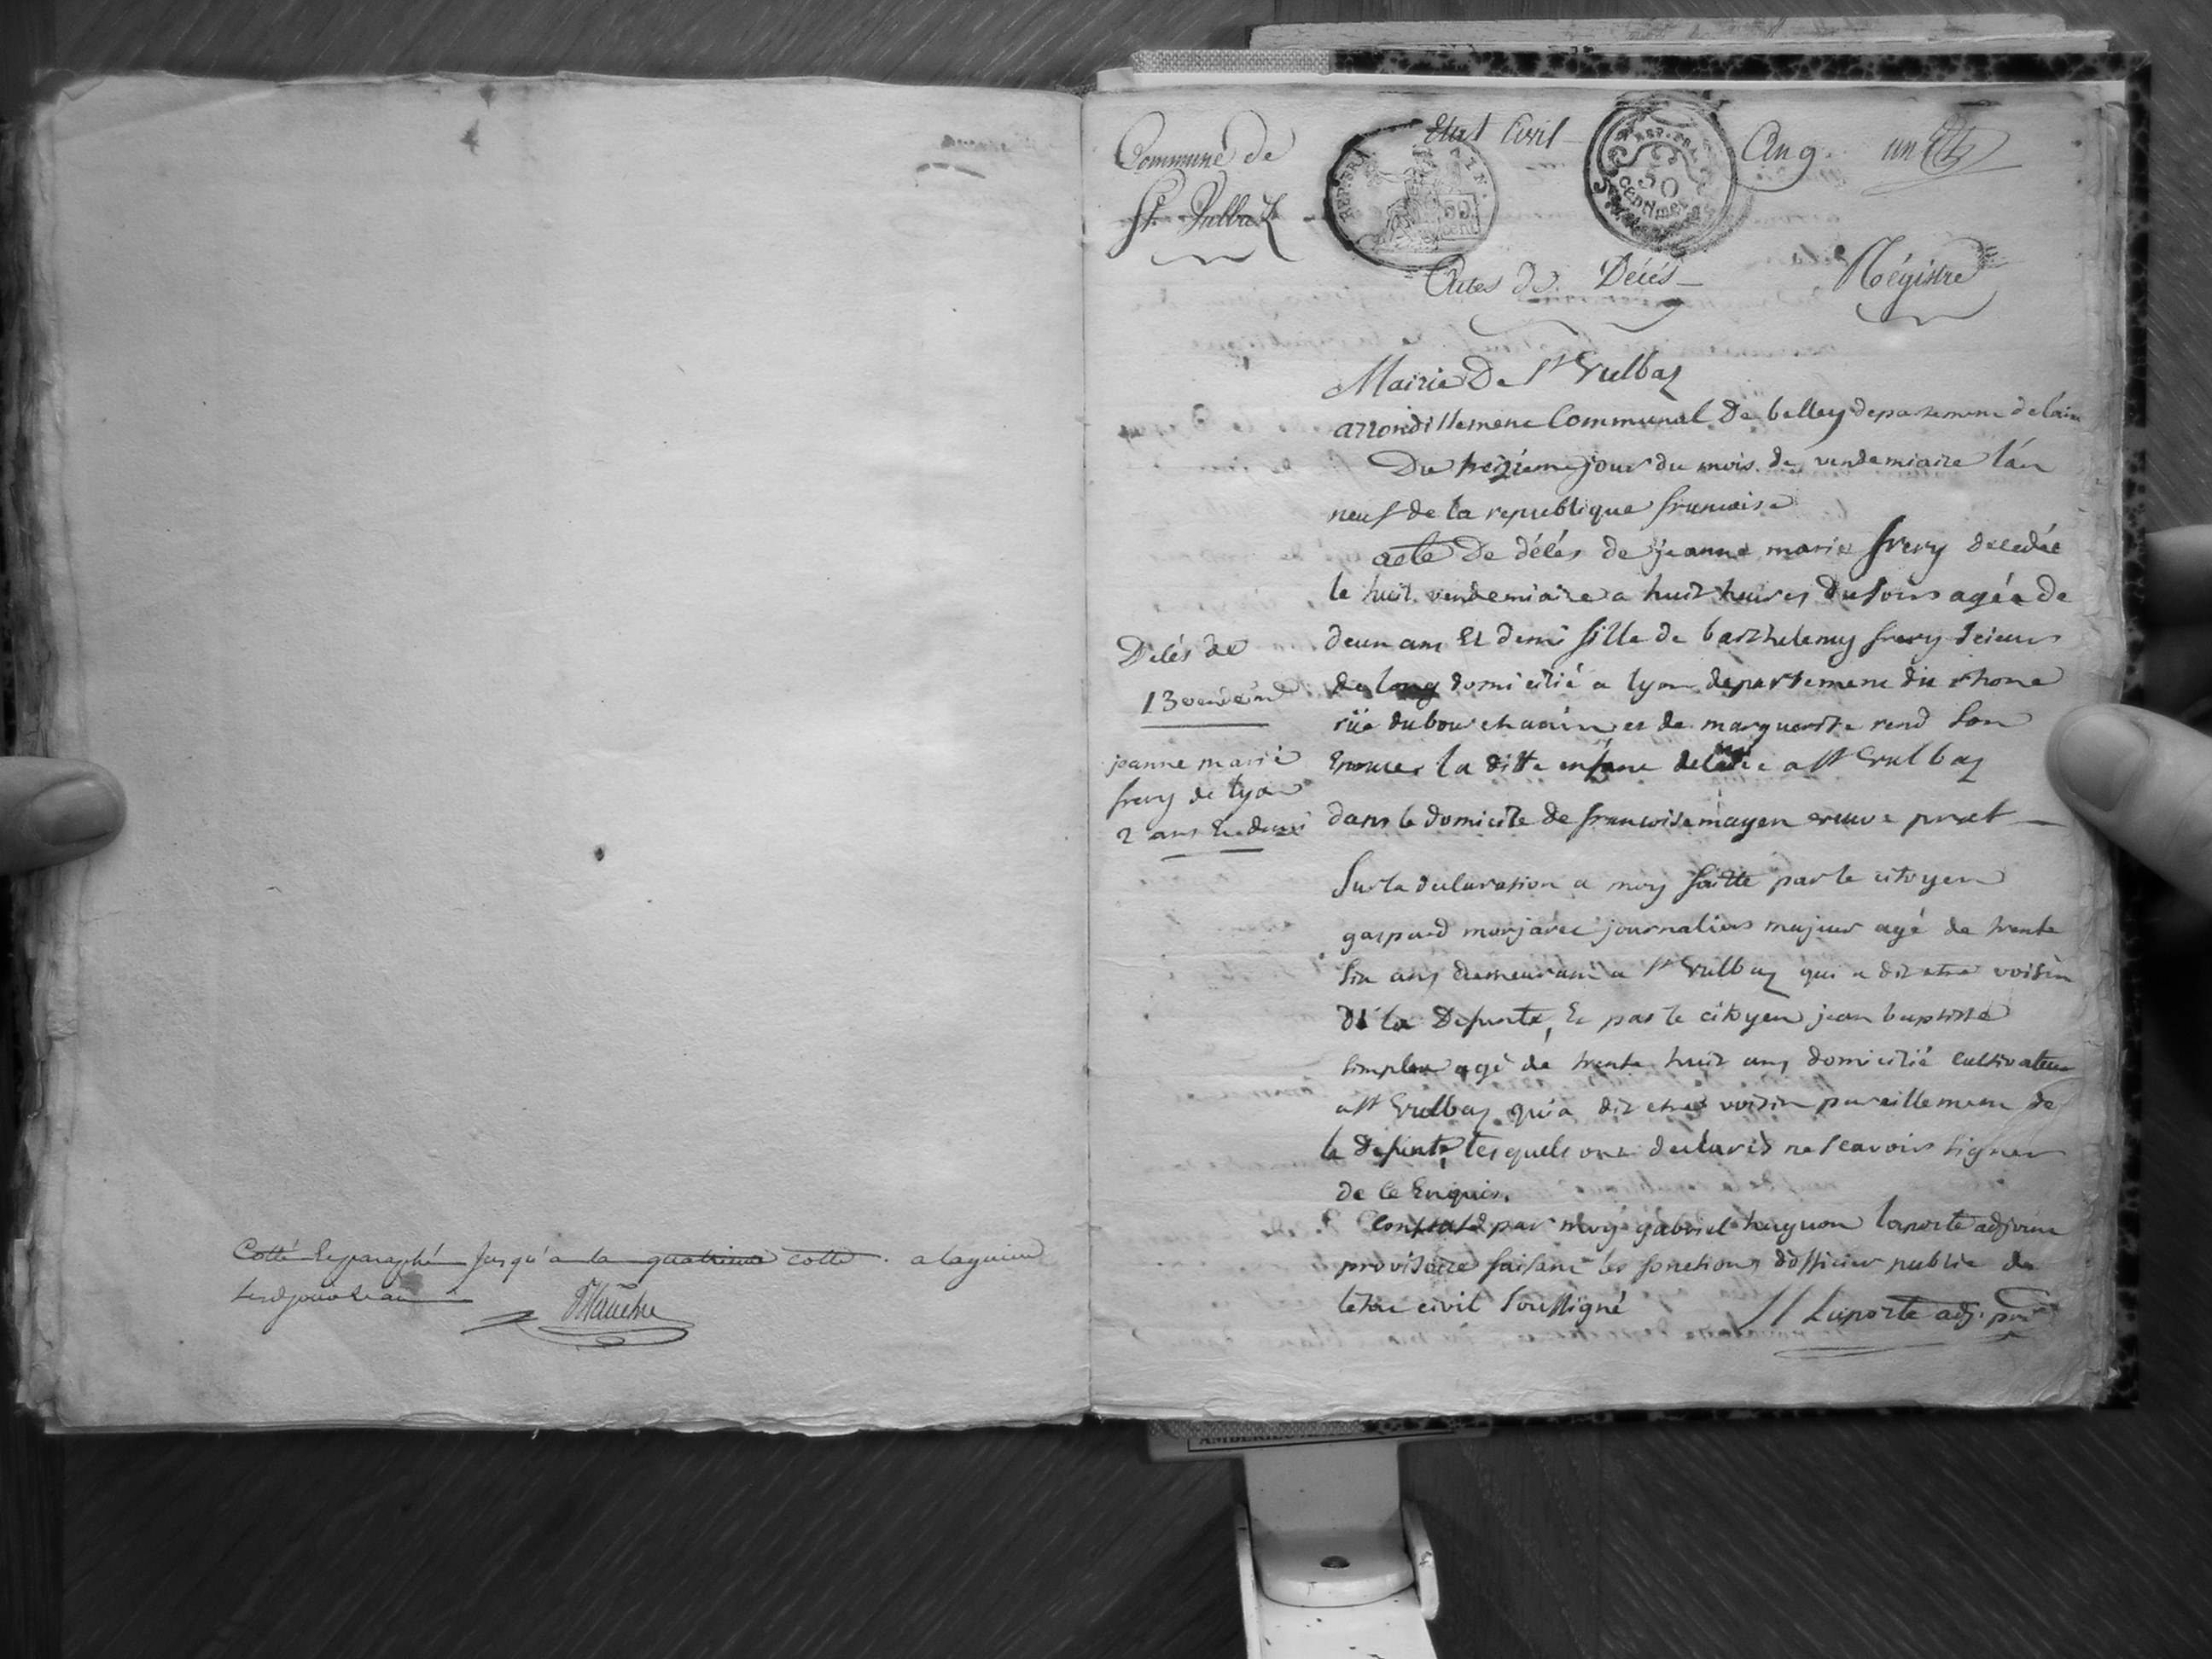 Cotté et paraphé jusqu'a la quatrieme cotte . a lagnieu
Commune de
St. Vulbaz
Etat Civil
REP. FRA.
50
cent
REP. FRA.
50
centimes
An 9.
un
Actes de Décés
Régistre
Mairie De St Vulbaz
arrondissement Communal De belley departement de lain
Du treizieme jour du mois de vendemiaire l'an
neuf de la republique francaise
acte De décés de jeanne marie frery decedée
le huit vendemiaire a huit heures du soir agée de
deux ans Et demi fille de barthelemy frery scieur
de long domicilié a lyon departement du rhone
rüe du et de marguerite rend son
Epouse, la ditte enfant decedée a St Vulbaz
dans le domicile de francoise mayen veuve
Décés de
13 vendém
jeanne marie
frery de lyon
2 ans Et demi
Sur la declaration a moy faitte par le citoyen
gaspard morjaret journalier majeur agé de trente
six ans demeurant a St Vulbaz qui a dit etre voisin
de la Defunte, Et par le citoyen jean baptiste
simplex agé de trente huit ans domicilié cultivateur
a St Vulbaz qui a dit etre voisin pareillement de
la defunte, lesquels ont declarés ne scavoir signer
de ce Enquis,
Constaté par moy gabriel huguon laporte adjoint
provisoire faisant les fonctions dofficier public de
letat civil soussigné
Laporte adj. pro